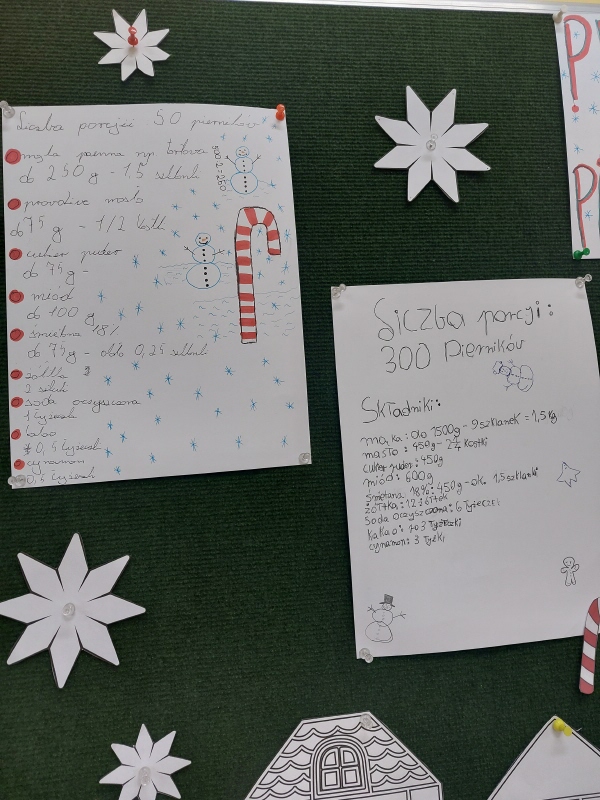 Liczba porcji 50 pierników
mąka pszenna np. tortowa
do 250 g - 1,5 szklanki
500:2=250
prawdziwe masło
do 75 g - 1/2 kostki
cukier puder
do 75 g -
miód
do 100 g
śmietana 18%
do 75 g - około 0,25 szklanki
żółtka
2 sztuki
soda oczyszczona
1 łyżeczka
kakao
0,4 łyżeczki
cynamon
0,4 łyżeczki
Liczba porcji:
300 Pierników
Składniki:
mąka: do 1500g - 9 szklanek = 1,5 kg
masło: 450g - 2 1/4 kostki
cukier puder: 450g
miód: 600g
śmietana 18%: 450g - ok. 1,5 szklanki
żółtka: 12 żółtek
Soda oczyszczona: 6 łyżeczek
kakao: 3 łyżeczki
cynamon: 3 łyżki
P
Pi